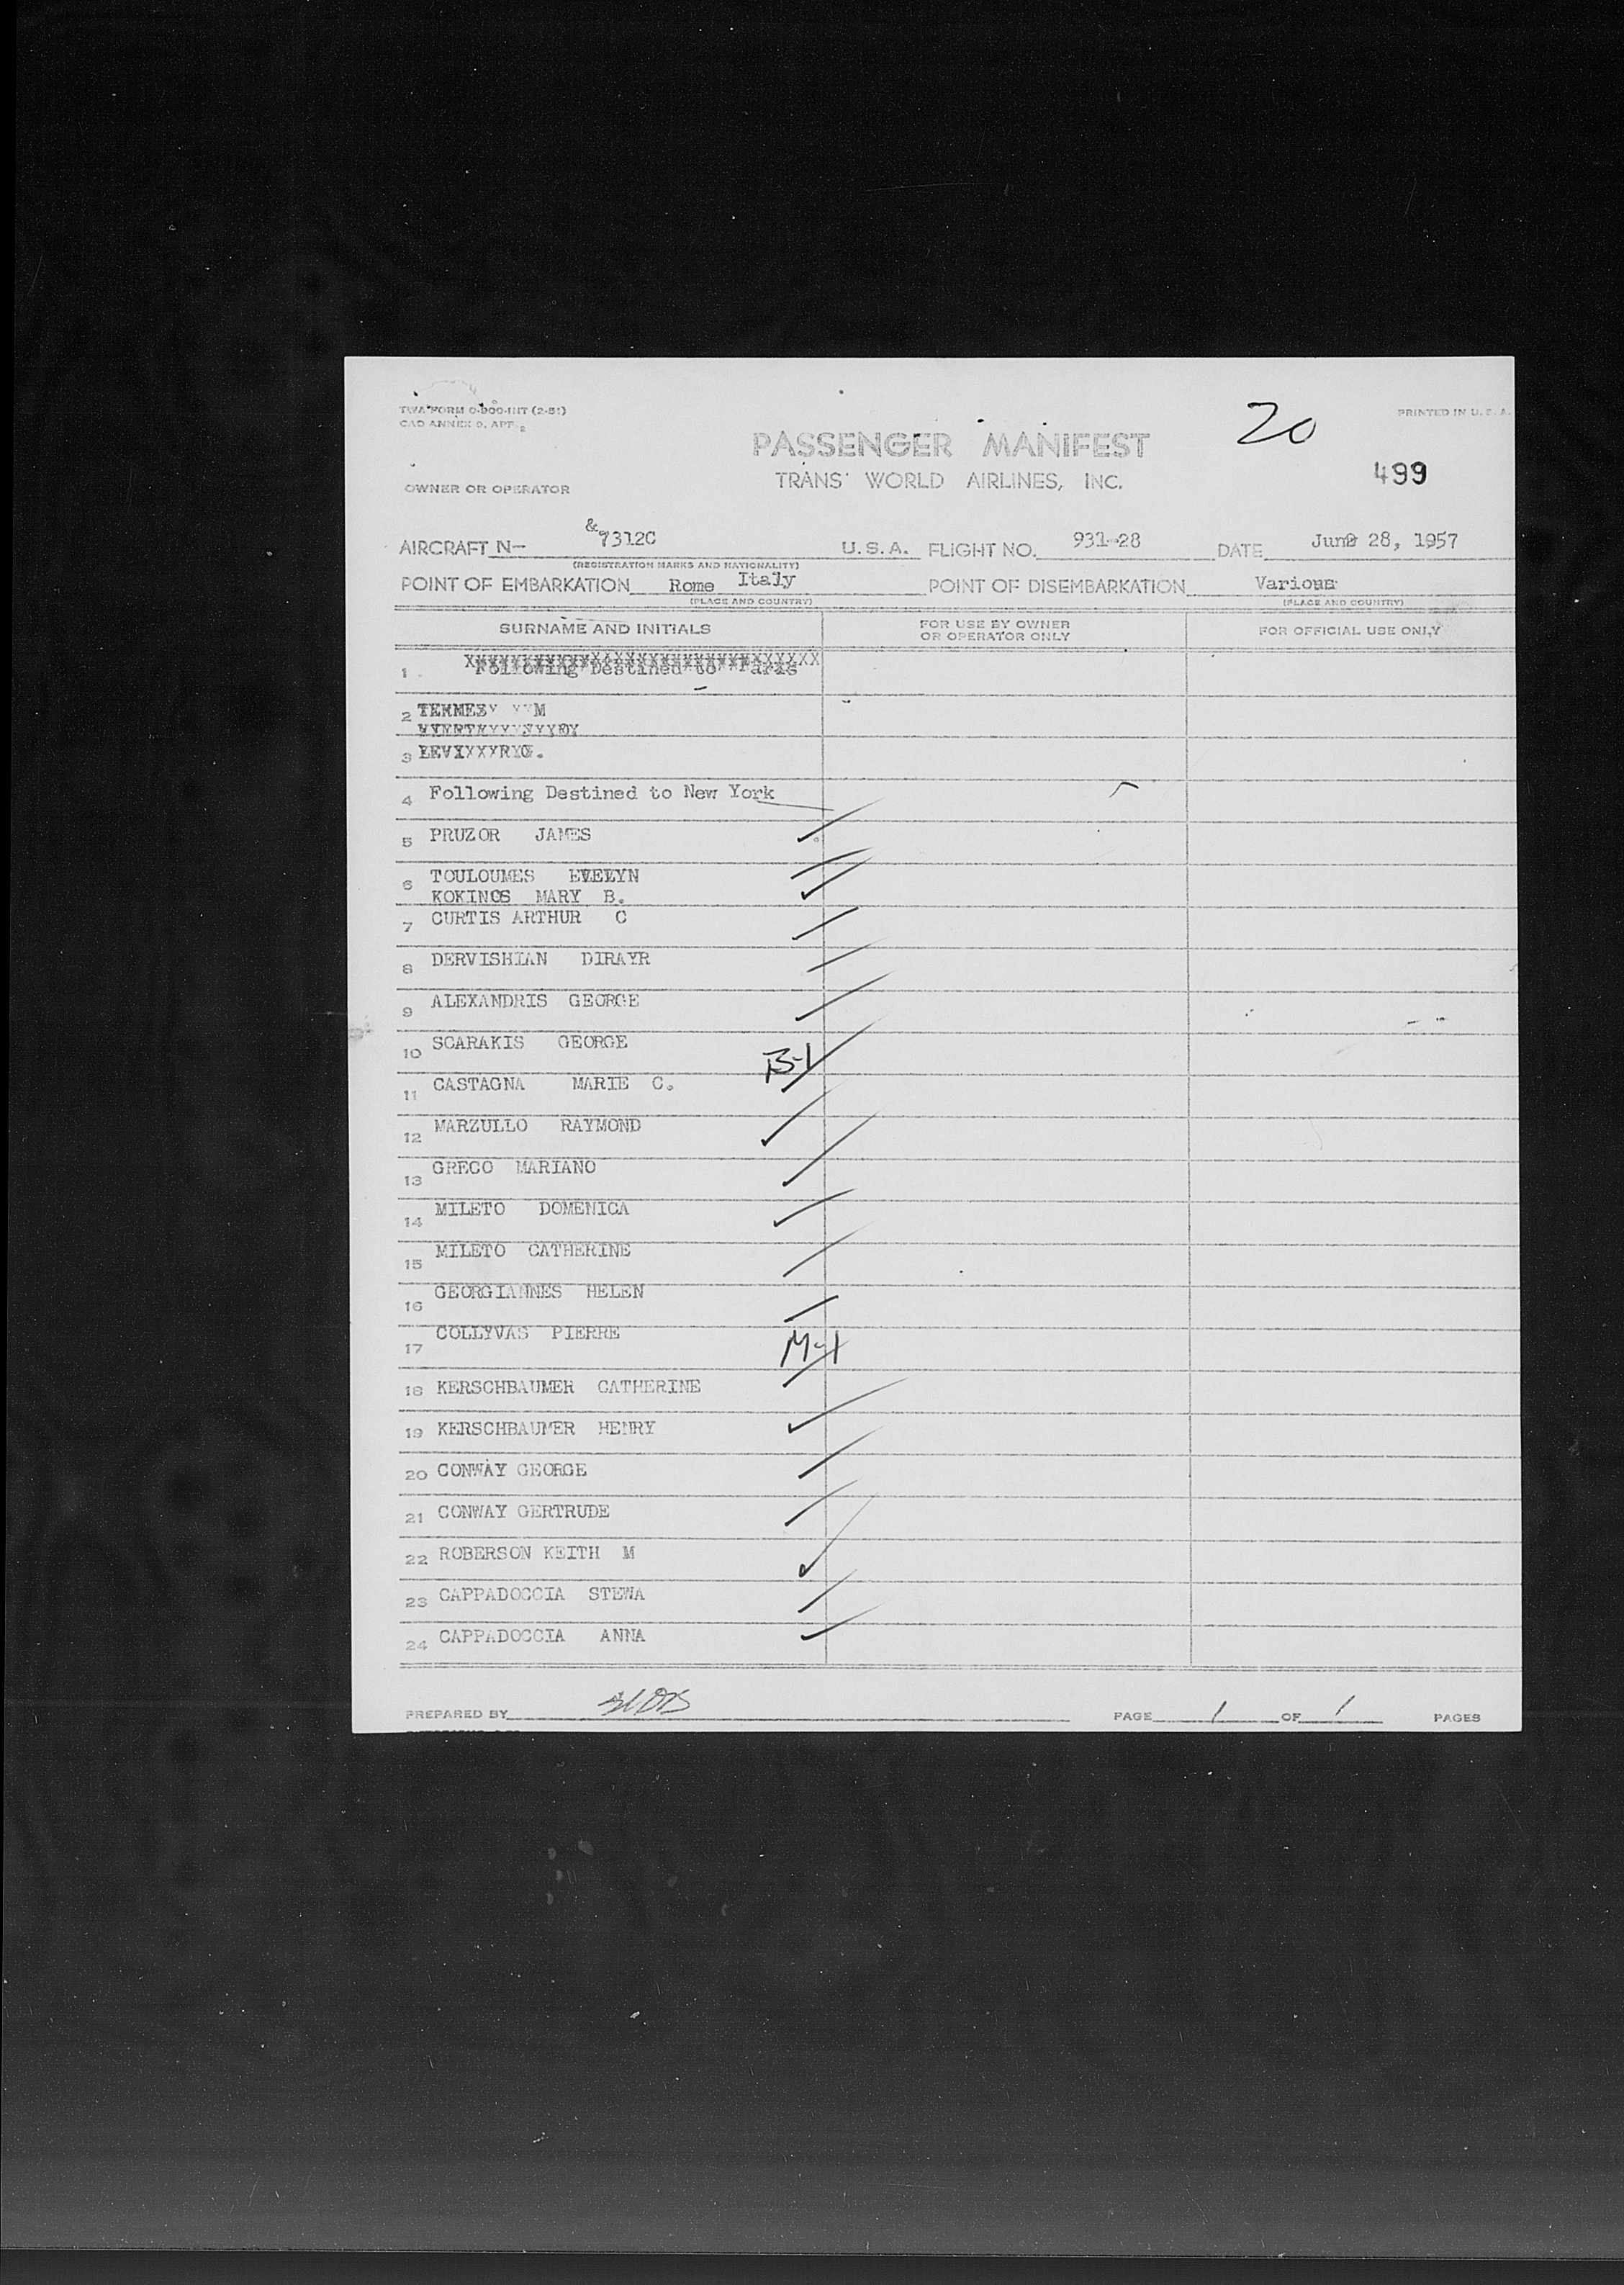 TWA FORM 0-900-INT (2-51)
CAO ANNEX 9, APP. 2
20
PRINTED IN U. S. A.
PASSENGER MANIFEST
TRANS WORLD AIRLINES, INC.
499
OWNER OR OPERATOR
AIRCRAFT N- & 7312C U.S.A. FLIGHT NO. 931-28 DATE June 28, 1957
(REGISTRATION MARKS AND NATIONALITY)
POINT OF EMBARKATION Rome Italy POINT OF DISEMBARKATION Various
(PLACE AND COUNTRY) (PLACE AND COUNTRY)
SURNAME AND INITIALS FOR USE BY OWNER OR OPERATOR ONLY FOR OFFICIAL USE ONLY
1 Following Destined to Paris
2
3
4 Following Destined to New York
5 PRUZOR JAMES
6 TOULOUMES EVELYN
KOKINOS MARY B.
7 CURTIS ARTHUR C
8 DERVISHIAN DIRAYR
9 ALEXANDRIS GEORGE
10 SCARAKIS GEORGE B-1
11 CASTAGNA MARIE C.
12 MARZULLO RAYMOND
13 GRECO MARIANO
14 MILETO DOMENICA
15 MILETO CATHERINE
16 GEORGIANNES HELEN
17 COLLYVAS PIERRE M-1
18 KERSCHBAUMER CATHERINE
19 KERSCHBAUMER HENRY
20 CONWAY GEORGE
21 CONWAY GERTRUDE
22 ROBERSON KEITH M
23 CAPPADOCCIA STEWA
24 CAPPADOCCIA ANNA
PREPARED BY PAGE 1 OF 1 PAGES